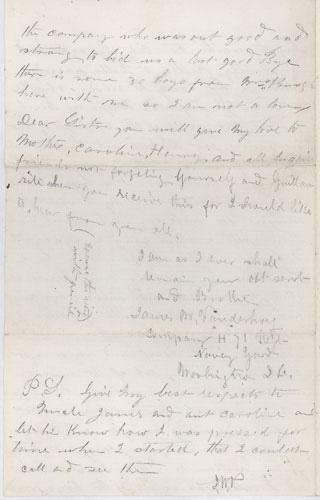 the company who was out good and
strong to bid us a last good Bye
there is some 30 boys from
here with me so I am not a lone
Dear Sister you will give my love to
Mother, Caroline, Henry, and all
friends not forgeting yourself and
rite when you receive this for I should like
to hear from you all,
I am as I ever shall
remain your obt servt
and Brother
James M.
Company H 71 Regt
Navey Yard
Washington D.C.
P.S. Give my best respects to
Uncle James and ant caroline and
let him Know how I was pressed for
time when I started, that I couldent
call and see them